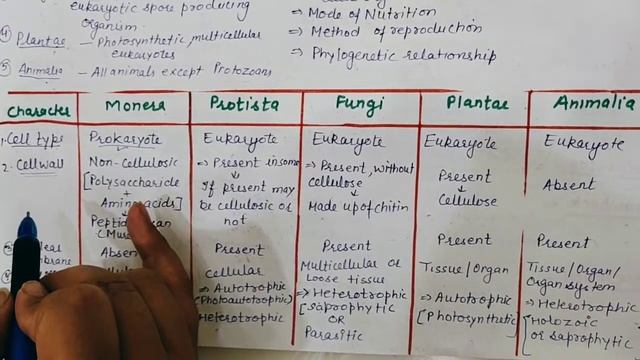 eukaryotic spore producing
organism.
④ Plantae - Photosynthetic, multicellular
eukaryotes
⑤ Animalia - All animals except Protozoans
⇒ Mode of Nutrition
⇒ Method of reproduction
⇒ Phylogenetic relationship
Character Monera Protista Fungi Plantae Animalia
1. Cell type Prokaryote Eukaryote Eukaryote Eukaryote Eukaryote
2. Cell wall Non-Cellulosic ⇒ Present in some ⇒ Present, without Present Absent
[Polysaccharide ↓ cellulose ↓
+ If present may ↓ Cellulose
Amino acids] be cellulosic or Made up of chitin
not
Absen Present Present Present Present
Cellular Multicellular or Tissue/Organ Tissue/Organ/
Loose tissue Organ system
⇒ Autotrophic ⇒ Heterotrophic ⇒ Autotrophic ⇒ Heterotrophic
(Photoautotrophic) [Saprophytic [Photosynthetic] [Holozoic
Heterotrophic OR or saprophytic
Parasitic